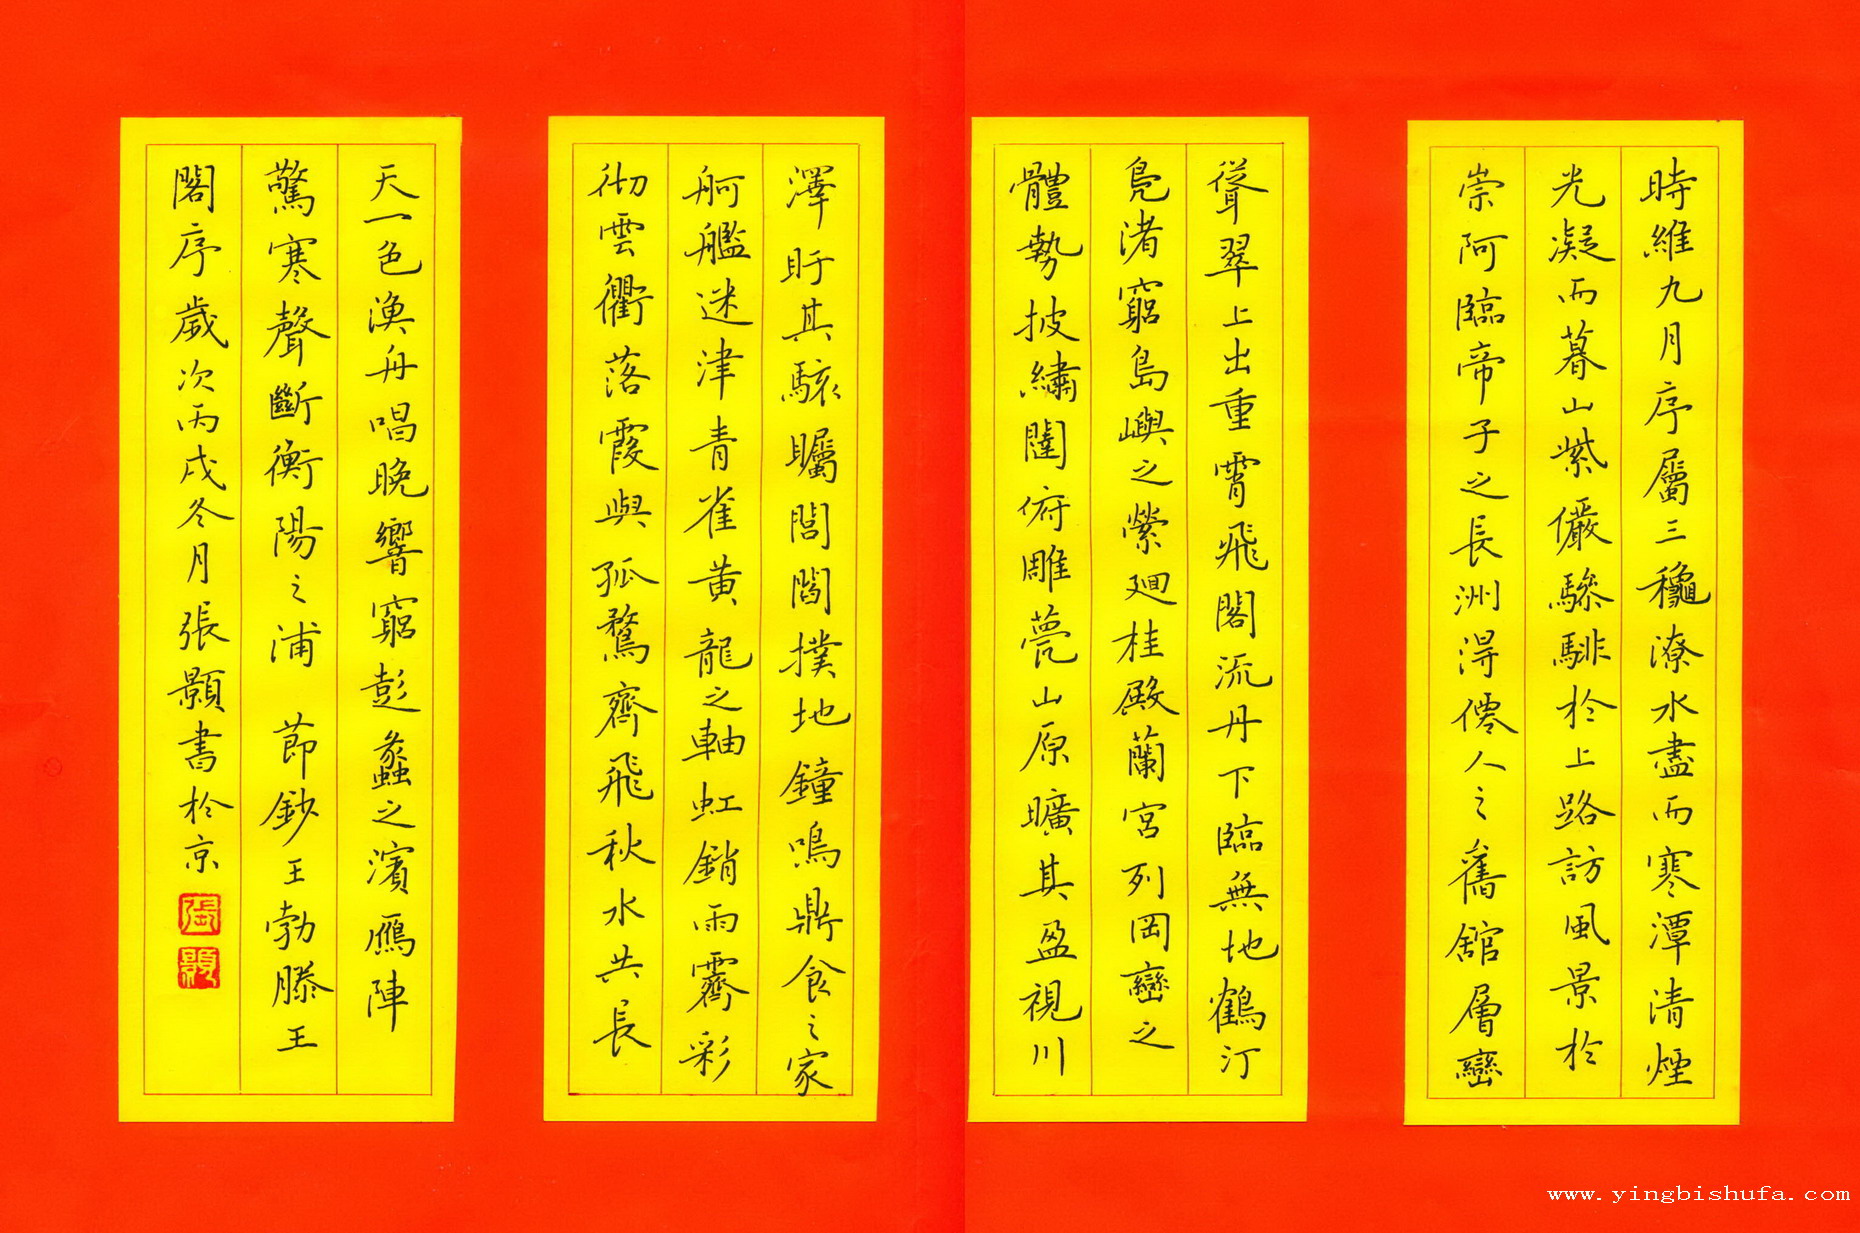 時維九月序屬三龝潦水盡而寒潭清煙
光凝而暮山紫儼驂騑於上路訪風景於
崇阿臨帝子之長洲淂僊人之舊舘層巒
聳翠上出重霄飛閣流丹下臨無地鶴汀
鳧渚窮島嶼之縈廻桂殿蘭宮列岡巒之
體勢披繡闥俯雕甍山原曠其盈視川
澤盱其駭矚閭閻撲地鐘鳴鼎食之家
舸艦迷津青雀黃龍之軸虹銷雨霽彩
彻雲衢落霞與孤鶩齊飛秋水共長
天一色漁舟唱晚響窮彭蠡之濱鴈陣
驚寒聲斷衡陽之浦 節鈔王勃滕王
閣序歲次丙戌冬月張顥書於京
www.yingbishufa.com